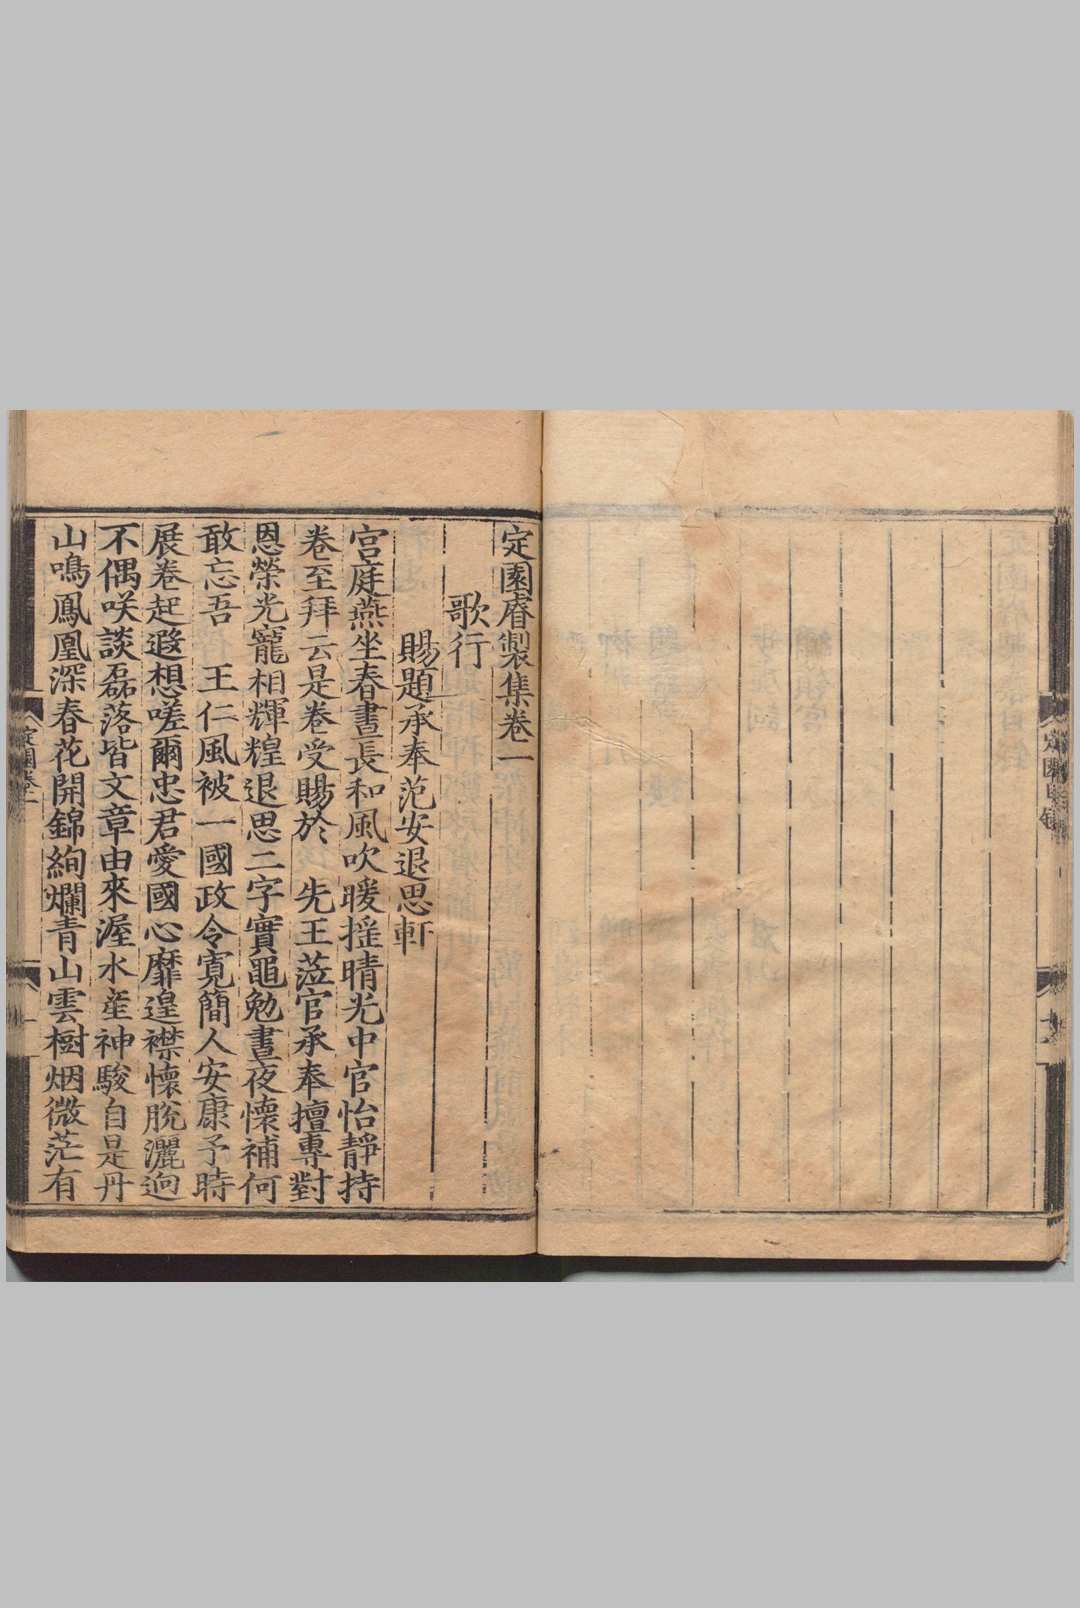 定園目錄
定園睿製集卷一
歌行
賜題承奉范安退思軒
宮庭燕坐春晝長和風吹暖搖晴光中官怡靜持
卷至拜云是卷受賜於 先王蒞官承奉擅專對
恩榮光寵相輝煌退思二字實黽勉晝夜懷補何
敢忘吾 王仁風被一國政令寬簡人安康予時
展卷起遐想嗟爾忠君愛國心靡遑襟懷脫灑逈
不偶咲談磊落皆文章由來渥水產神駿自是丹
山鳴鳳凰深春花開錦絢爛青山雲樹烟微茫有
定園卷一
一